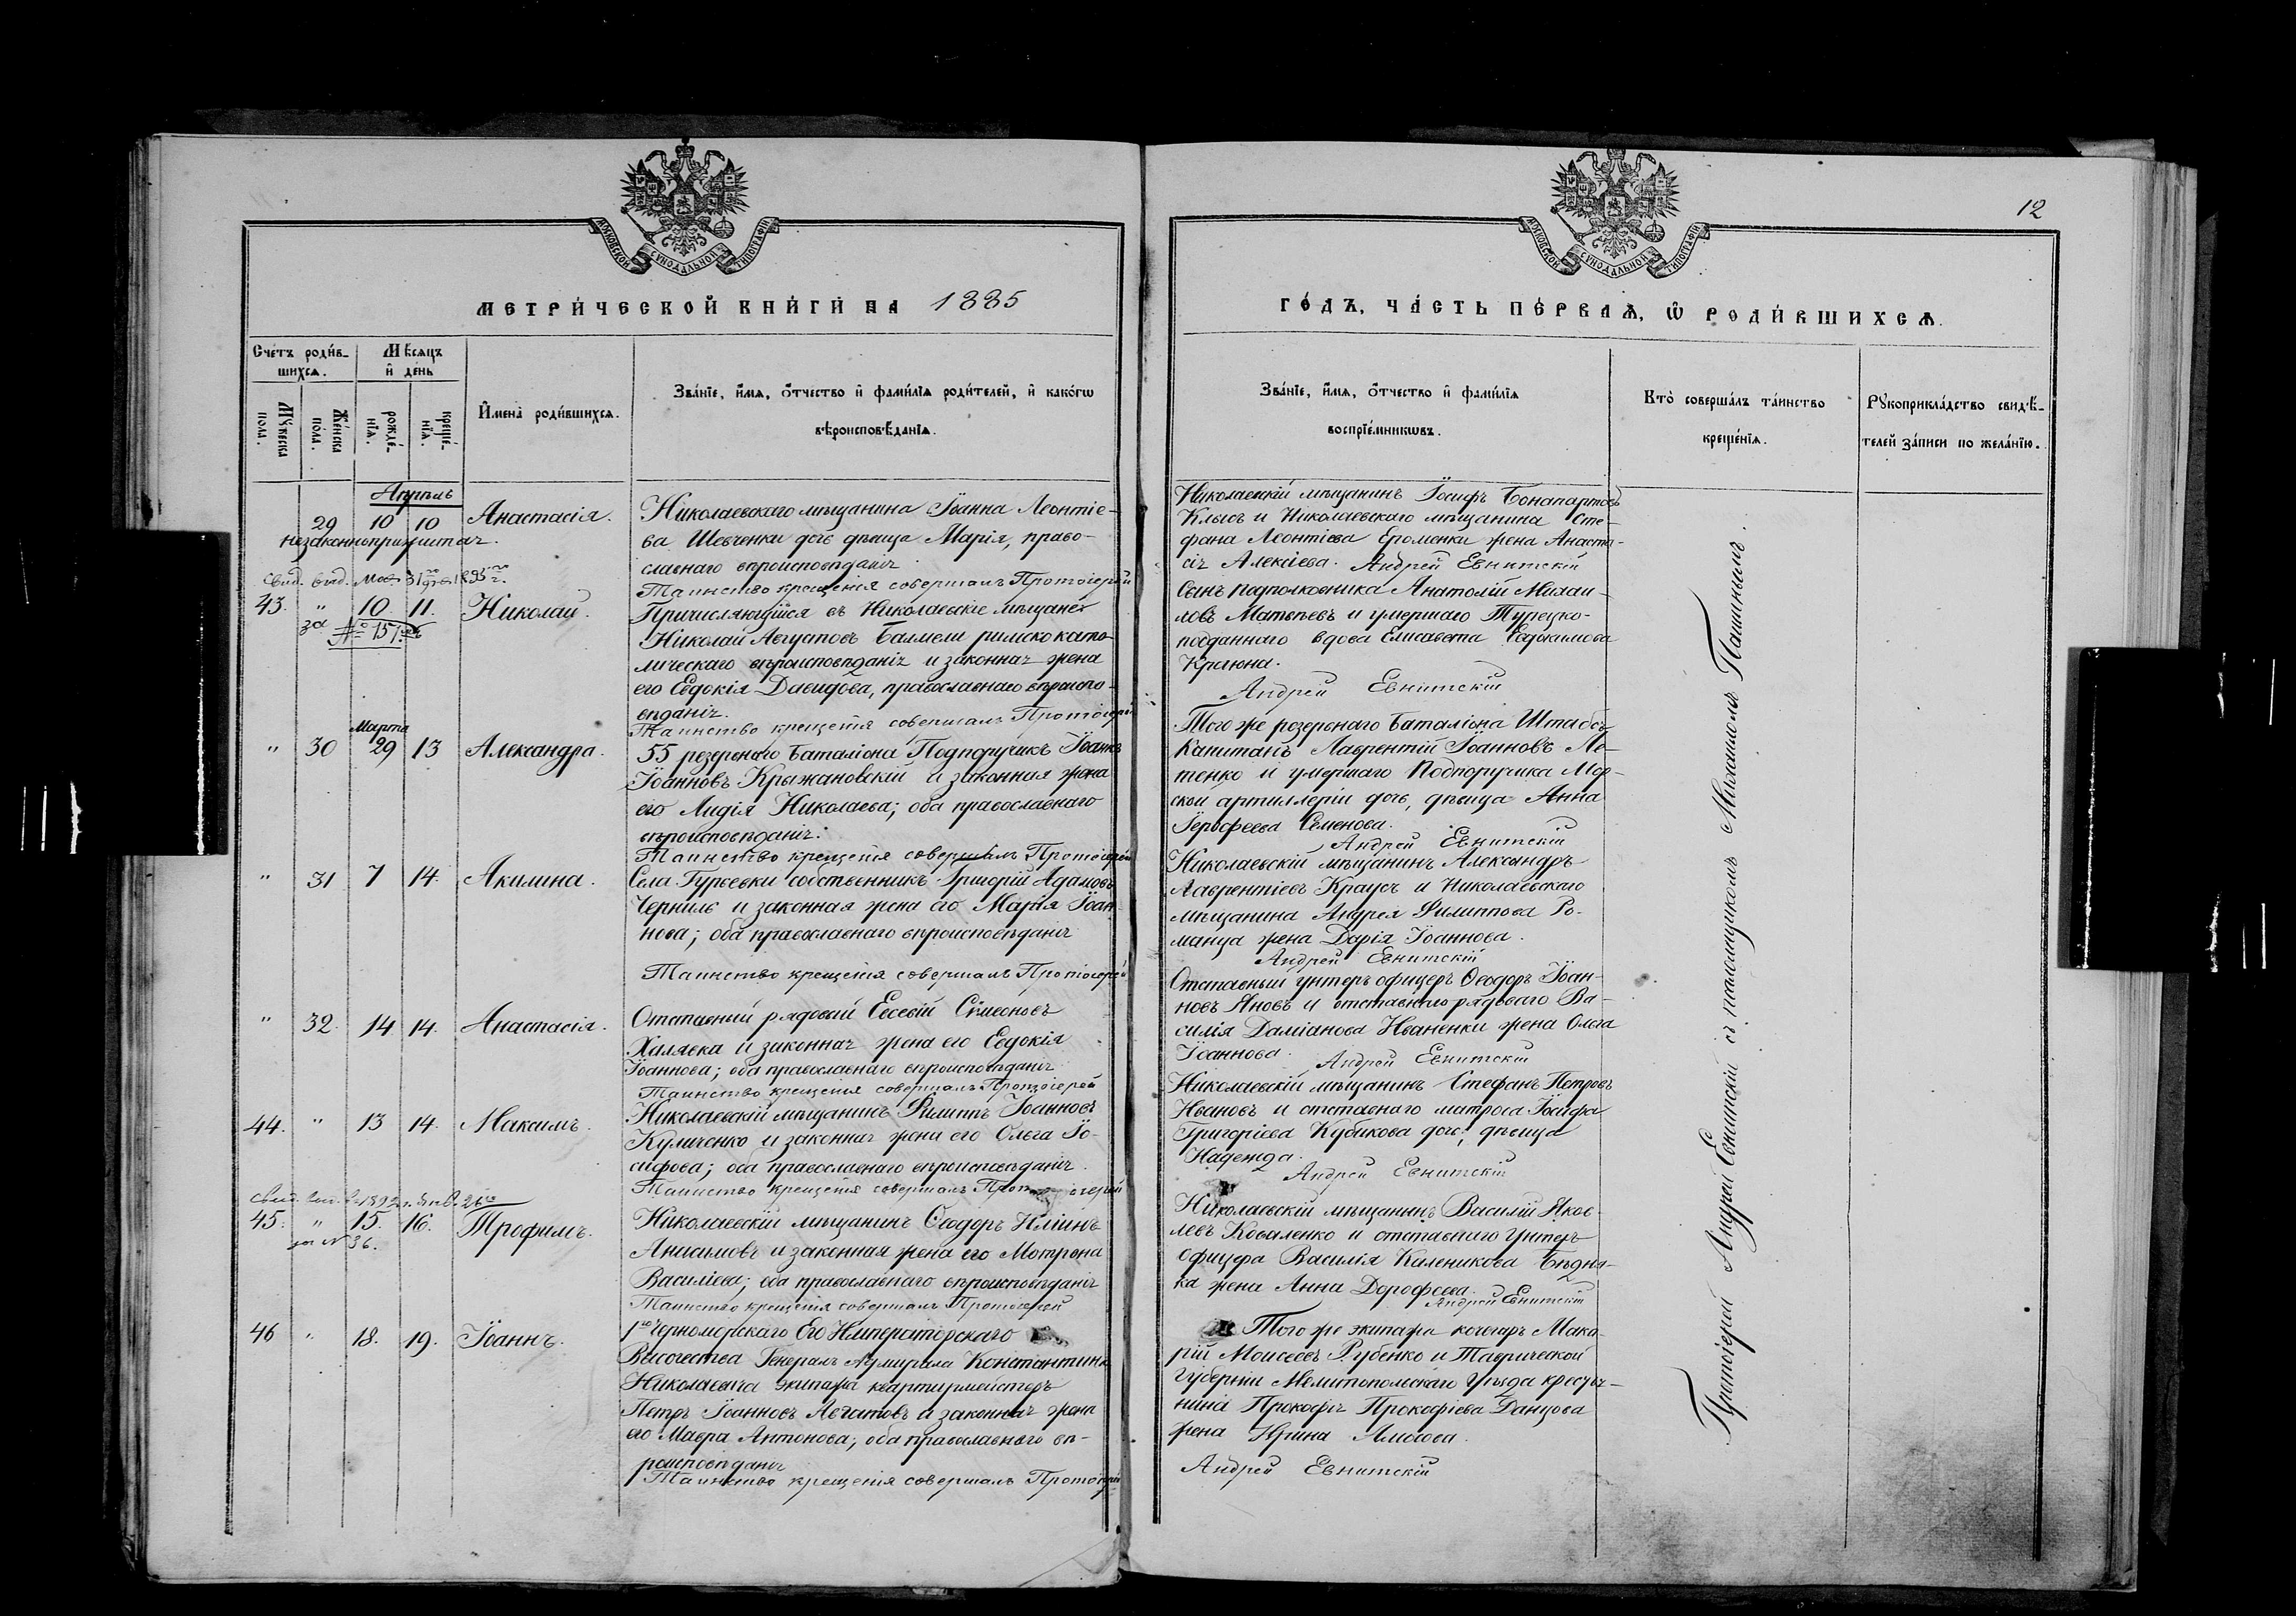 12
МОСКОВСКОЙ СУНОДАЛЬНОЙ ТИПОГРАФІИ
МОСКОВСКОЙ СУНОДАЛЬНОЙ ТИПОГРАФІИ
МЕТРИ́ЧЕСКОЙ КНИ́ГИ НА 1885
ГО́ДЪ, ЧА́СТЬ ПЕ́РВАѦ, Ѡ РОДИ́ВШИХСѦ.
Сче́тъ роди́в-
шихсѧ.
Мѣсѧцъ
и҆ де́нь
Мꙋ́жеска
пола.
Же́нска
по́ла.
рожде́-
нїѧ.
креще́-
нїѧ.
И҆мена̀ роди́вшихсѧ.
Зва́нїе, и҆́мѧ, ѻ҆́тчество и҆ фами́лїѧ роди́телей, и҆ како́гѡ
вѣроисповѣ́данїѧ.
Зва́нїе, и҆́мѧ, ѻ҆́тчество и҆ фами́лїѧ
воспрїе́мникѡвъ.
Кто̀ соверша́лъ та́инство
креще́нїѧ.
Рꙋкоприкла́дство свидѣ́-
телей за́писи по жела́нїю.
Апрѣль
29 10 10 Анастасія.
незаконноприжитая.
Николаевскаго мѣщанина Іоанна Леонтіе-
ва Шевченки дочь дѣвица Марія, право-
славнаго вѣроисповѣданія
Таинство крещенія совершалъ Протоіерей
Николаевскій мѣщанинъ Іосифъ Бонапартовъ
Клысъ и Николаевскаго мѣщанина Сте-
фана Леонтіева Ероменки жена Анаста-
сія Алексіева. Андрей Евнитскій
свид. выд.
43. " 10. 11. Николай.
за № 151
Причисляющійся въ Николаевскіе мѣщане
Николай Августовъ Балмели римско като-
лическаго вѣроисповѣданія и законная жена
его Евдокія Давидова, православнаго вѣроиспо-
вѣданія.
Таинство крещенія совершалъ Протоіерей
Сынъ подполковника Анатолій Михаи-
ловъ Матвѣевъ и умершаго Турецко-
подданнаго вдова Елисавета Евдокимова
Краюна.
Андрей Евнитскій
Марта
" 30 29 13 Александра.
55 резервнаго баталіона Подпоручикъ Іоаннъ
Іоанновъ Крыжановскій и законная жена
его Лидія Николаева; оба православнаго
вѣроисповѣданія.
Таинство крещенія совершалъ Протоіерей
Того же резервнаго баталіона Штабсъ-
Капитанъ Лаврентій Іоанновъ Ле-
тенко и умершаго Подпоручика Мор-
ской артиллеріи дочь, дѣвица Анна
Іерофеева Семенова.
Андрей Евнитскій
" 31 7 14. Акилина.
Села Гурьевки собственникъ Григорій Адамовъ
Черниль и законная жена его Марія Іоан-
нова; оба православнаго вѣроисповѣданія
Таинство крещенія совершалъ Протоіерей
Николаевскій мѣщанинъ Александръ
Лаврентіевъ Краусъ и Николаевскаго
мѣщанина Андрея Филиппова Ро-
манца жена Дарія Іоаннова.
Андрей Евнитскій
" 32. 14 14. Анастасія.
Отставный рядовый Евсевій Симеоновъ
Халявка и законная жена его Евдокія
Іоаннова; оба православнаго вѣроисповѣданія
Таинство крещенія совершалъ Протоіерей
Отставный унтеръ офицеръ Ѳеодоръ Іоан-
новъ Яновъ и отставнаго рядоваго Ва-
силія Даміанова Иваненки жена Ольга
Іоаннова. Андрей Евнитскій
44. " 13 14. Максимъ.
Николаевскій мѣщанинъ Филиппъ Іоанновъ
Куличенко и законная жена его Ольга Іо-
сифова; оба православнаго вѣроисповѣданія.
Таинство крещенія совершалъ Протоіерей
Николаевскій мѣщанинъ Стефанъ Петровъ
Ивановъ и отставнаго матроса Іосифа
Григоріева Кубикова дочь, дѣвица
Надежда.
Андрей Евнитскій
свид. выд. 1892 г. Янв. 26го
45. " 15. 16. Трофимъ.
за № 36.
Николаевскій мѣщанинъ Ѳеодоръ Иліинъ
Анисимовъ и законная жена его Мотрона
Василіева; оба православнаго вѣроисповѣданія
Таинство крещенія совершалъ Протоіерей
Николаевскій мѣщанинъ Василій Яков-
левъ Коваленко и отставнаго унтеръ
офицера Василія Каленикова Бѣдня-
ка жена Анна Дорофеева.
Андрей Евнитскій
46 " 18. 19. Іоаннъ.
1го Черноморскаго Его Императорскаго
Высочества Генералъ Адмирала Константина
Николаевича экипажа квартирмейстеръ
Петръ Іоанновъ Авгатовъ и законная жена
его Мавра Антонова; оба православнаго вѣ-
роисповѣданія
Таинство крещенія совершалъ Протоіерей
Того же экипажа кочегаръ Мака-
рій Моисеевъ Рубенко и Таврической
Губерніи Мелитопольскаго уѣзда крестья-
нина Прокофія Прокофіева Данцова
жена Ирина Амосова.
Андрей Евнитскій
Протоіерей Андрей Евнитскій съ псаломщикомъ Михаиломъ Пашинымъ.